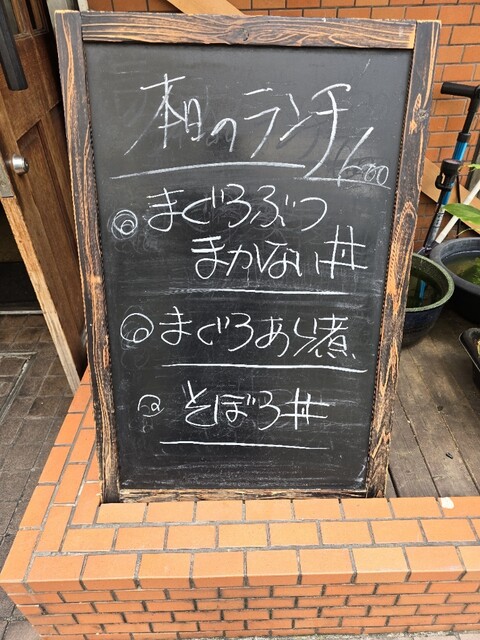 本日のランチ
680
◎まぐろぶつ
まかない丼
◎まぐろあら煮
◎そぼろ丼